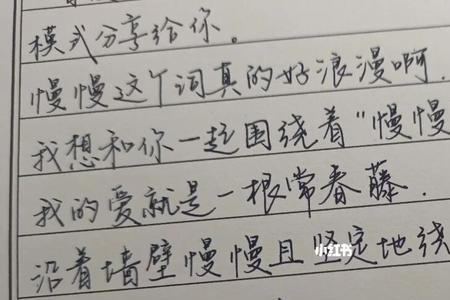 模式分享给你。
慢慢这个词真的好浪漫啊.
我想和你一起围绕着“慢慢
我的爱就是一根常春藤.
沿着墙壁慢慢且坚定地绕
小红书